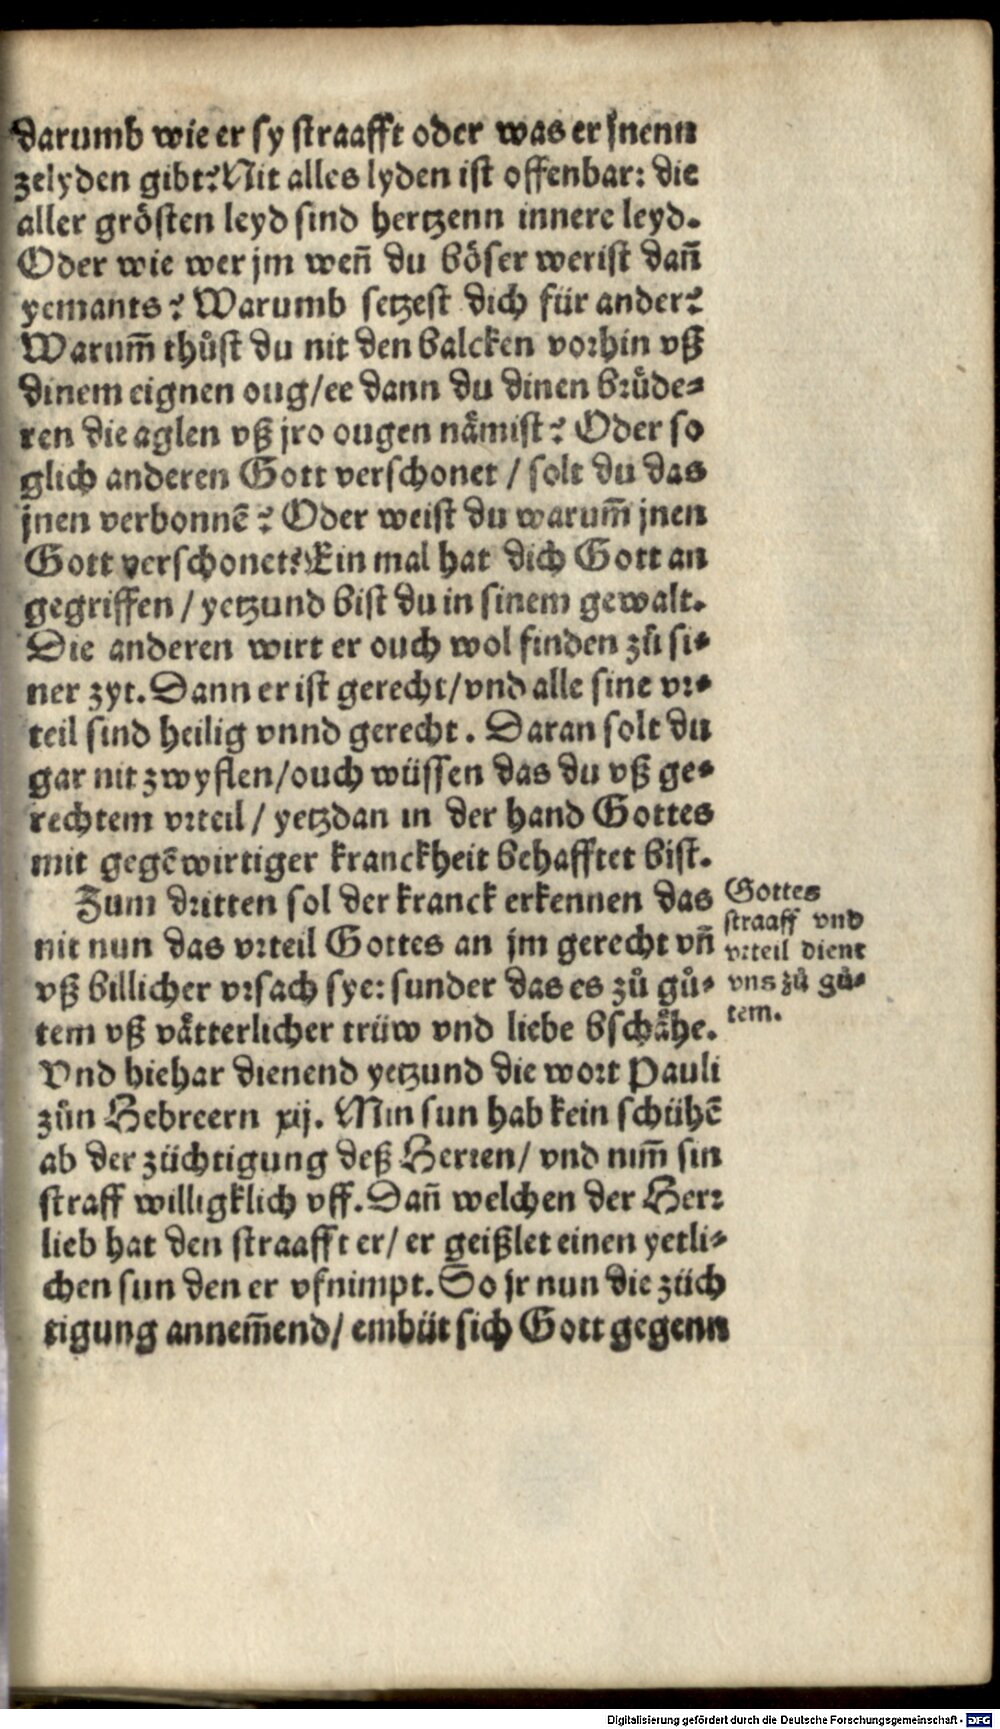 darumb wie er sy straafft oder was er jnenn
zelyden gibt? Nit alles lyden ist offenbar: die
aller grösten leyd sind hertzenn innere leyd.
Oder wie wer jm weñ du böser werist dañ
yemants? Warumb setzest dich für ander?
Warum̃ thůst du nit den balcken vorhin vß
dinem eignen oug/ee dann du dinen brůde⸗
ren die aglen vß jro ougen nåmist? Oder so
glich anderen Gott verschonet / solt du das
jnen verbonnẽ? Oder weist du warum̃ jnen
Gott verschonet? Ein mal hat dich Gott an
gegriffen / yetzund bist du in sinem gewalt.
Die anderen wirt er ouch wol finden zů si⸗
ner zyt. Dann er ist gerecht/vnd alle sine vr⸗
teil sind heilig vnnd gerecht. Daran solt du
gar nit zwyflen/ouch wüssen das du vß ge⸗
rechtem vrteil / yetzdan in der hand Gottes
mit gegẽwirtiger kranckheit behafftet bist.
Zum dritten sol der kranck erkennen das
nit nun das vrteil Gottes an jm gerecht vñ
vß billicher vrsach sye: sunder das es zů gů⸗
tem vß våtterlicher trüw vnd liebe bschåhe.
Vnd hiehar dienend yetzund die wort Pauli
zůn Hebreern xij. Min sun hab kein schühẽ
ab der züchtigung deß Herren/ vnd nim̃ sin
straff willigklich vff. Dañ welchen der Herr
lieb hat den straafft er/ er geißlet einen yetli⸗
chen sun den er vfnimpt. So jr nun die züch
tigung annem̃end/ embüt sich Gott gegenn
Gottes
straaff vnd
vrteil dient
vns zů gů⸗
tem.
Digitalisierung gefördert durch die Deutsche Forschungsgemeinschaft - DFG